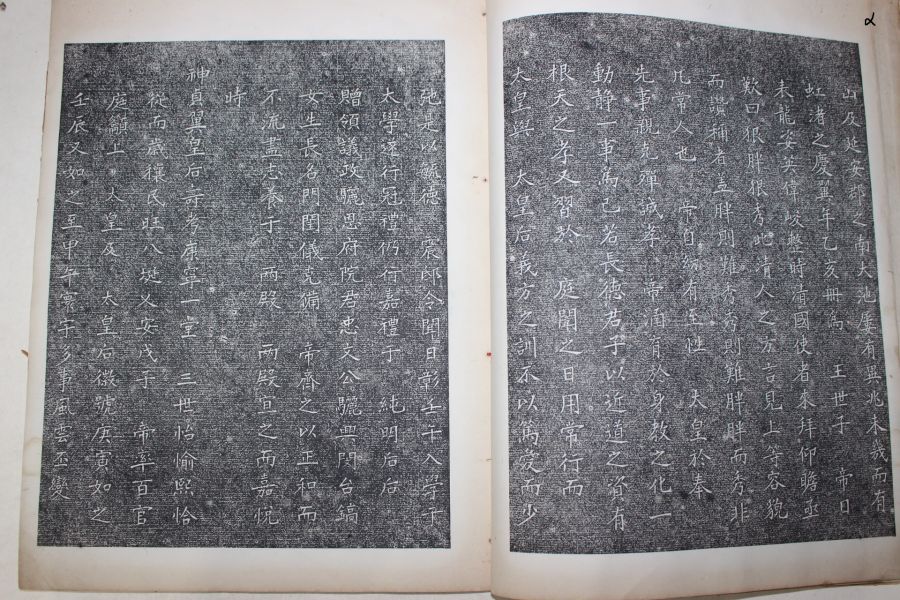 α
山及延安郡之南大池屢有異兆未幾而有
虹渚之慶翼年乙亥冊為 王世子 帝日
表龍姿英偉岐嶷時淸國使者來拜仰瞻亟
歎曰很胖很秀此淸人之方言見上等容貌
而讚稱者盖胖則難秀秀則難胖胖而秀非
凡常人也 帝自幼有至性 太皇於奉
先事親克殫誠孝 帝濡育於身教之化一
動静一事為已若長德君子以近道之資有
根天之孝又習於 庭聞之日用常行而
太皇與 太皇后義方之訓示以篤愛而少
弛是以毓德 震邸令聞日彰壬午入學于
太學遂行冠禮仍行嘉禮于 純明后后
贈領議政驪恩府院君忠文公驪興閔台鎬
女生長名門閨儀克備 帝齊之以正和而
不流盡志養于 兩殿 兩殿宜之而嘉悅
時
神貞翼皇后壽考康寧一堂 三世怡愉熙恰
從而歲穰民旺八埏乂安戊子 帝率百官
庭籲上 太皇及 太皇后徽號庚寅如之
壬辰又如之至甲午寰宇多事風雲丕變